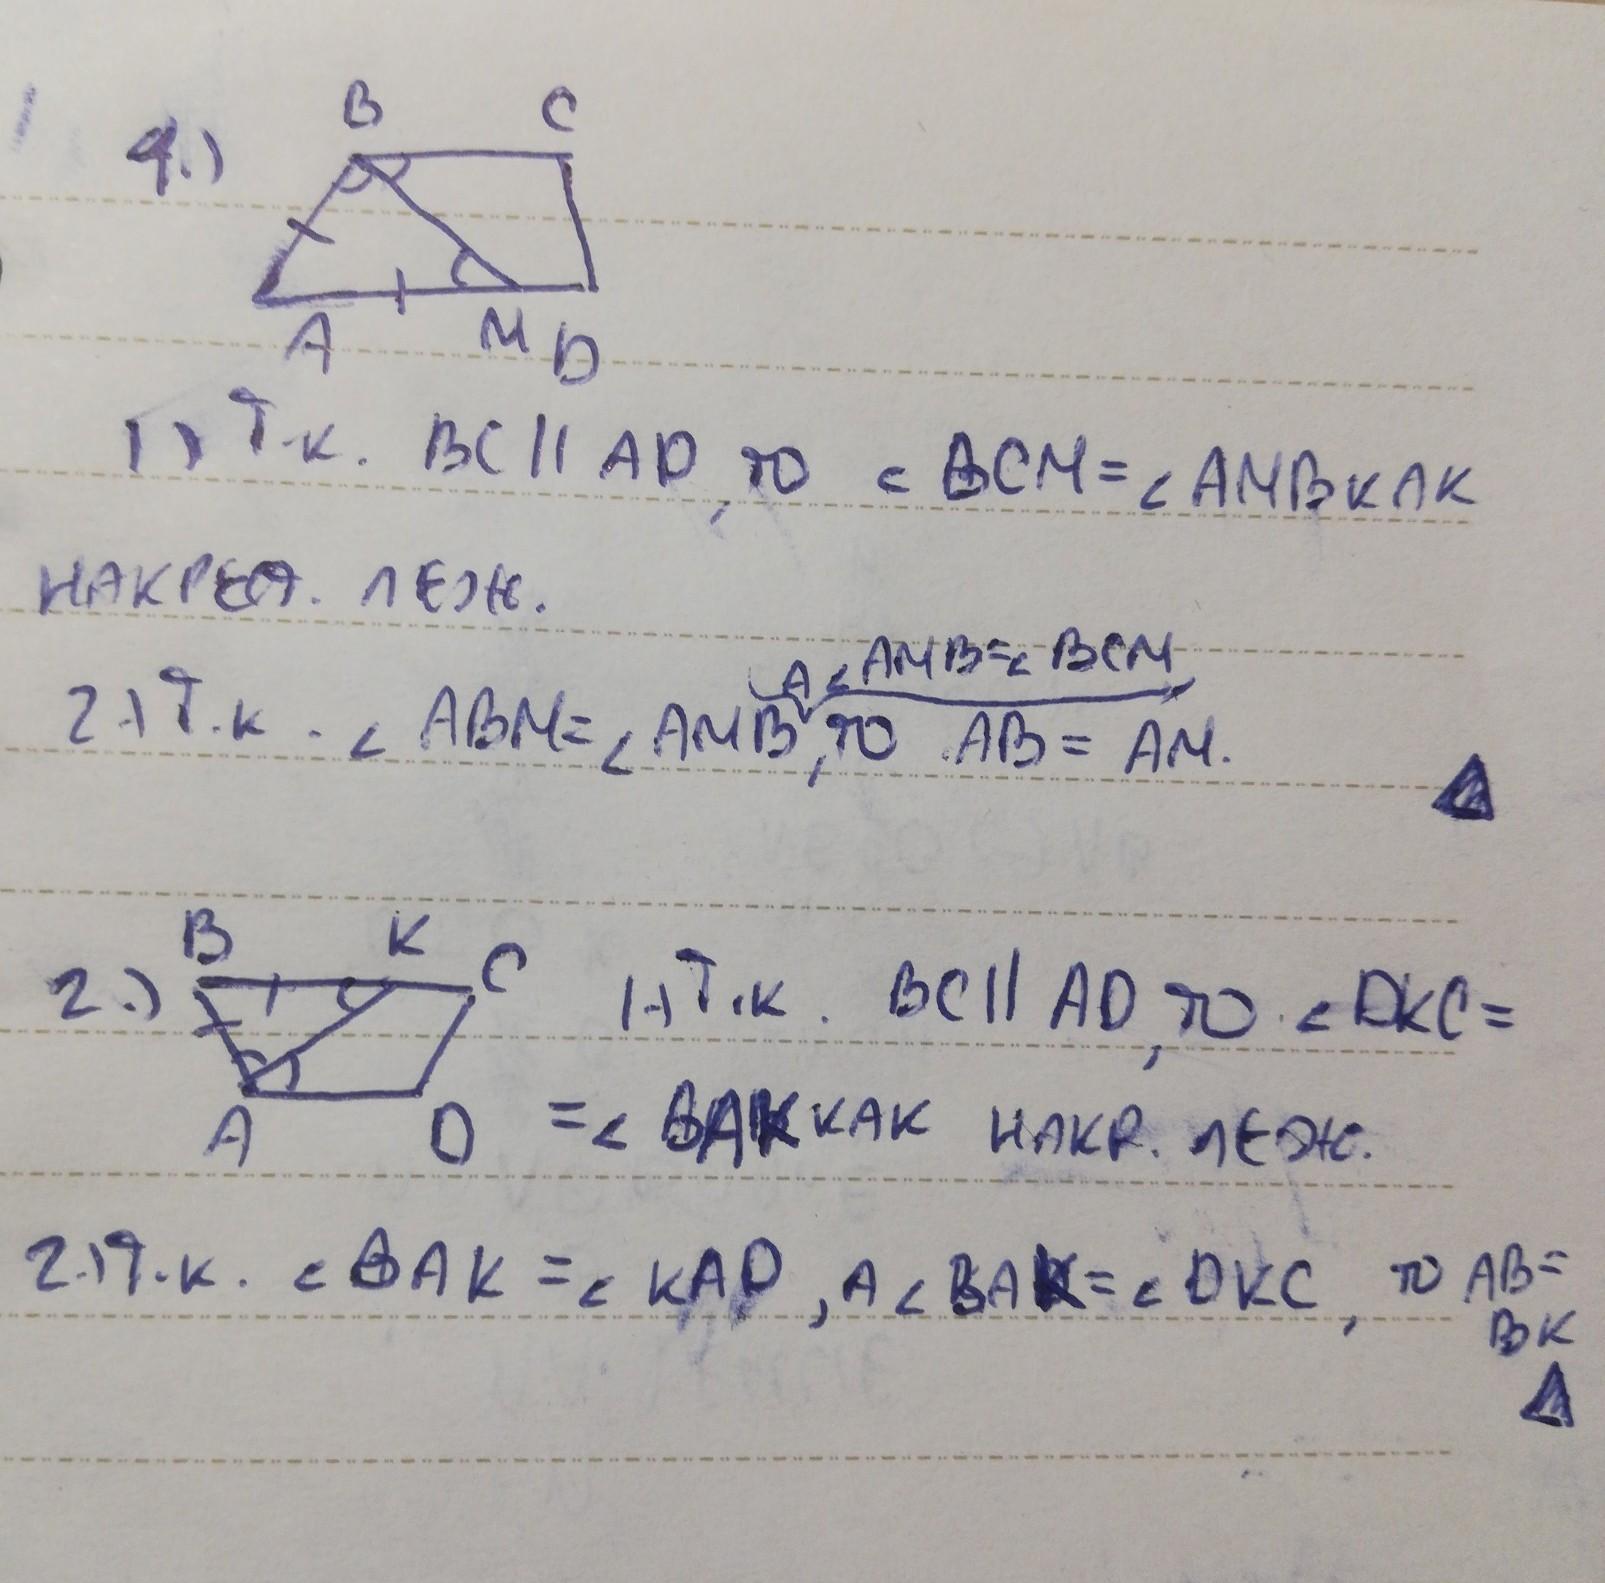 1.)
B C
A M D
1) Т.к. BC || AD, то ∠ BCM = ∠ AMB как
накрест. леж.
а ∠ AMB = ∠ BCM
2.) Т.к. ∠ ABM = ∠ AMB, то AB = AM.
B K C
2.)
A D
1.) Т.к. BC || AD, то ∠ DKC =
= ∠ BAK как накр. леж.
2.) Т.к. ∠ BAK = ∠ KAD, а ∠ BAK = ∠ DKC, то AB =
BK